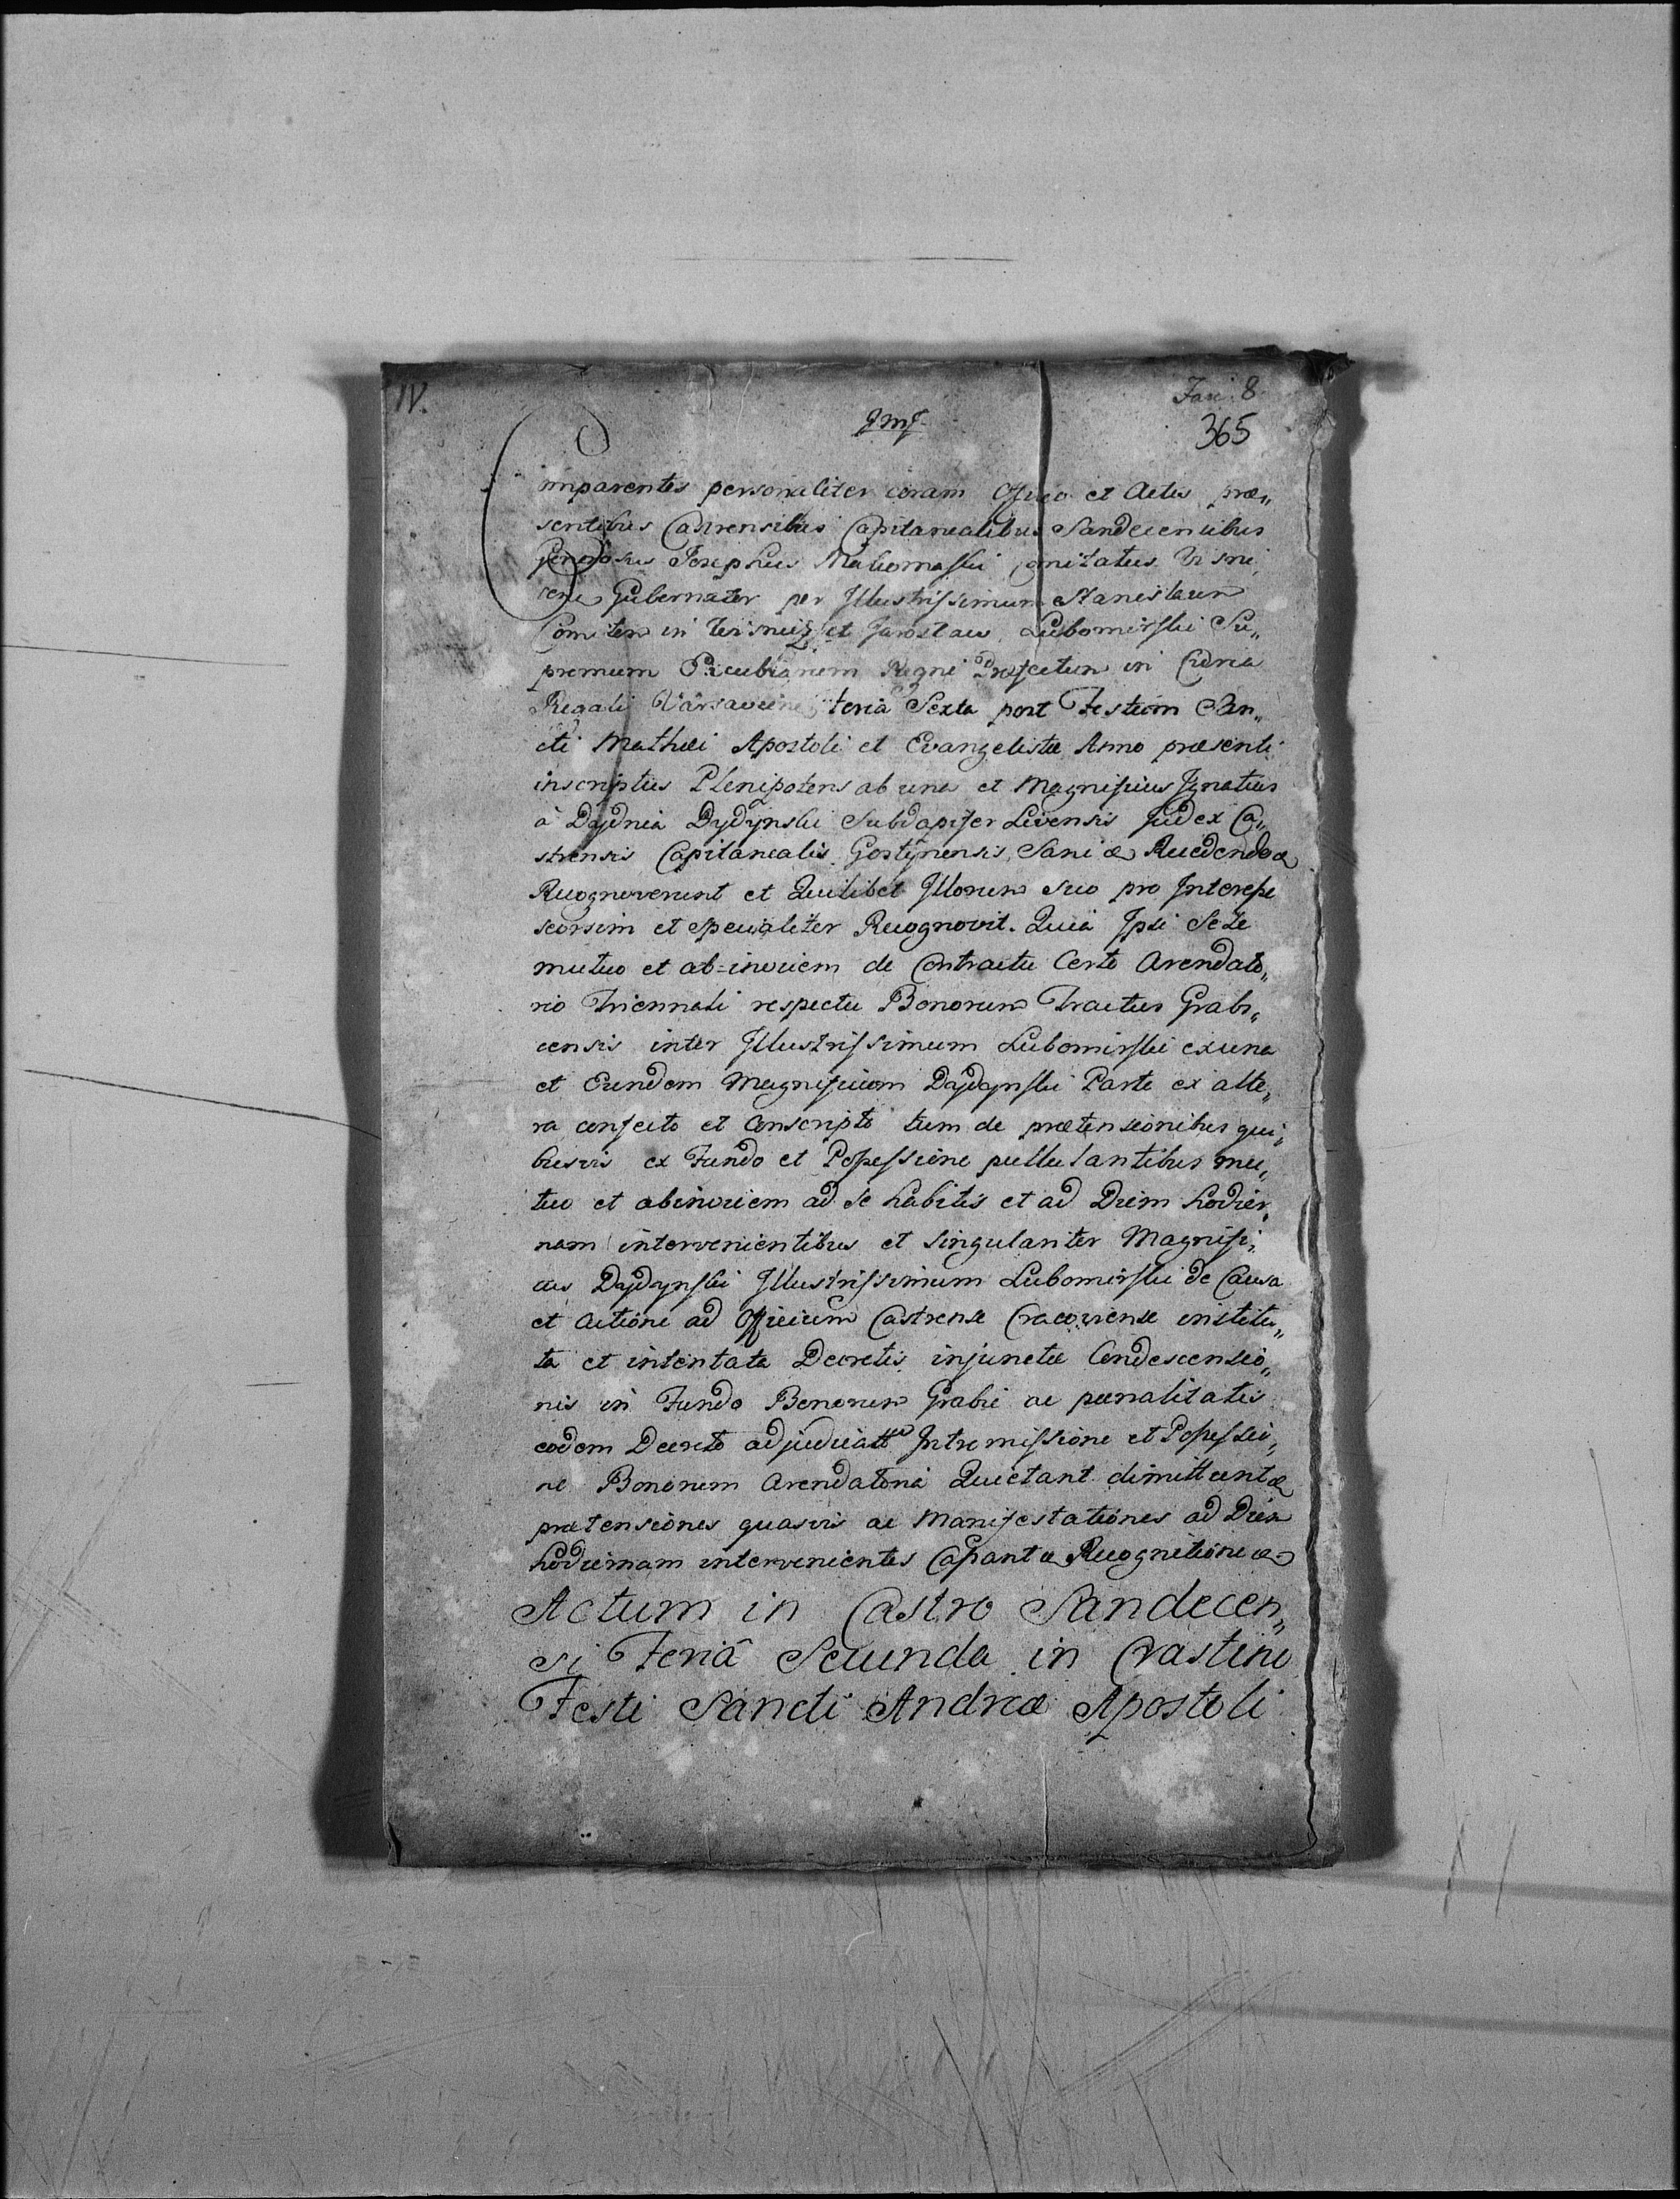 IV.
Fasc. 8
365
Comparentes personaliter coram Officio et Actis præ„
sentibus Castrensibus Capitanealibus Sandecensibus
Generosus Josephus Małiomaski Comitatus Visni„
cens Gubernator per Illustrissimum Stanislaum
Comitem in Wisnicz et Jarosław Lubomirski Su„
premum Excubiarum Regni Præfectum in Curia
Regali Varsaviens feria Sexta post Festum San„
cti Mathæi Apostoli et Evangelistæ Anno præsenti
inscriptus Plenipotens ab una et Magnificus Ignatius
à Dydnia Dydynski Subdapifer Livensis Judex Ca„
strensis Capitanealis Gostynensis, Sani &
Recognoverunt et Quilibet Illorum suo pro Interesse
seorsim et specialiter Recognovit. Quia Ipsi Sese
mutuo et ab-invicem de Contractu Certo Arendato„
rio Triennali respectu Bonorum Tractus Grabi„
censis inter Illustrissimum Lubomirski ex una
et Eundem Magnificum Dydynski Parte ex alte„
ra confecto et Conscripto tum de prætensionibus qui„
busvis ex Fundo et Possessione pullulantibus mu„
tuo et abinvicem ad se habitis et ad Diem hodier„
nam intervenientibus et singulariter Magnifi„
cus Dydynski Illustrissimum Lubomirski de Causa
et Actione ad Officium Castrense Cracoviense institu„
ta et intentata Decretis injunctæ Condescensio„
nis in Fundo Bonorum Grabie ac pœnalitatis
eodem Decreto adjudicatæ Intromissione et Possessio„
ne Bonorum Arendatoria Quietant dimittunt &
prætensiones quasvis ac Manifestationes ad Diem
hodiernam intervenientes Cassant & Recognitione &
Actum in Castro Sandecen„
si Feriâ Secunda in Crastino
Festi Sancti Andreæ Apostoli